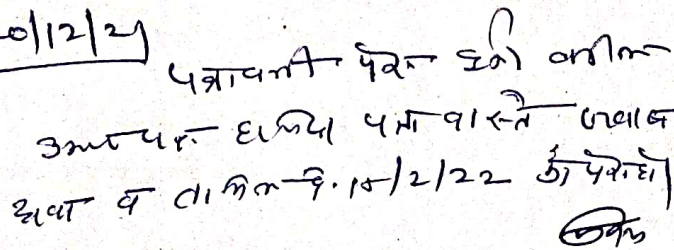 0/12/21
पत्रावली पेश हुई वकील
उभय पक्ष हाजिर पत्रा वास्ते जवाब
दावा व तामिल दि. 15/2/22 को पेश हो